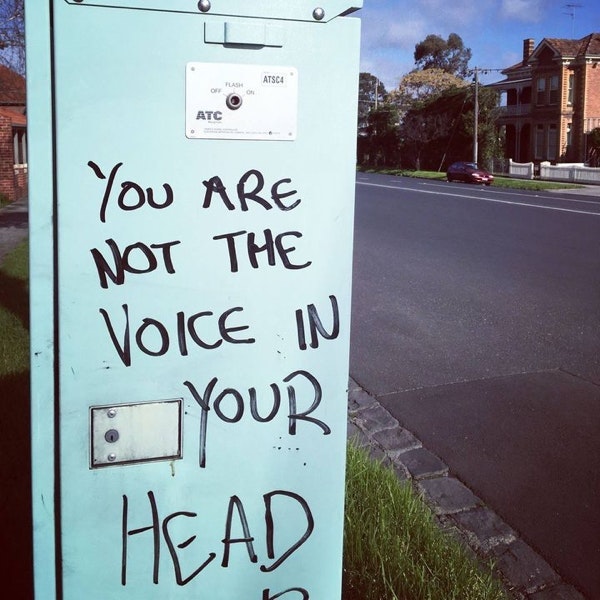 FLASH
OFF ON
ATSC4
ATC
YOU ARE
NOT THE
VOICE IN
YOUR
HEAD